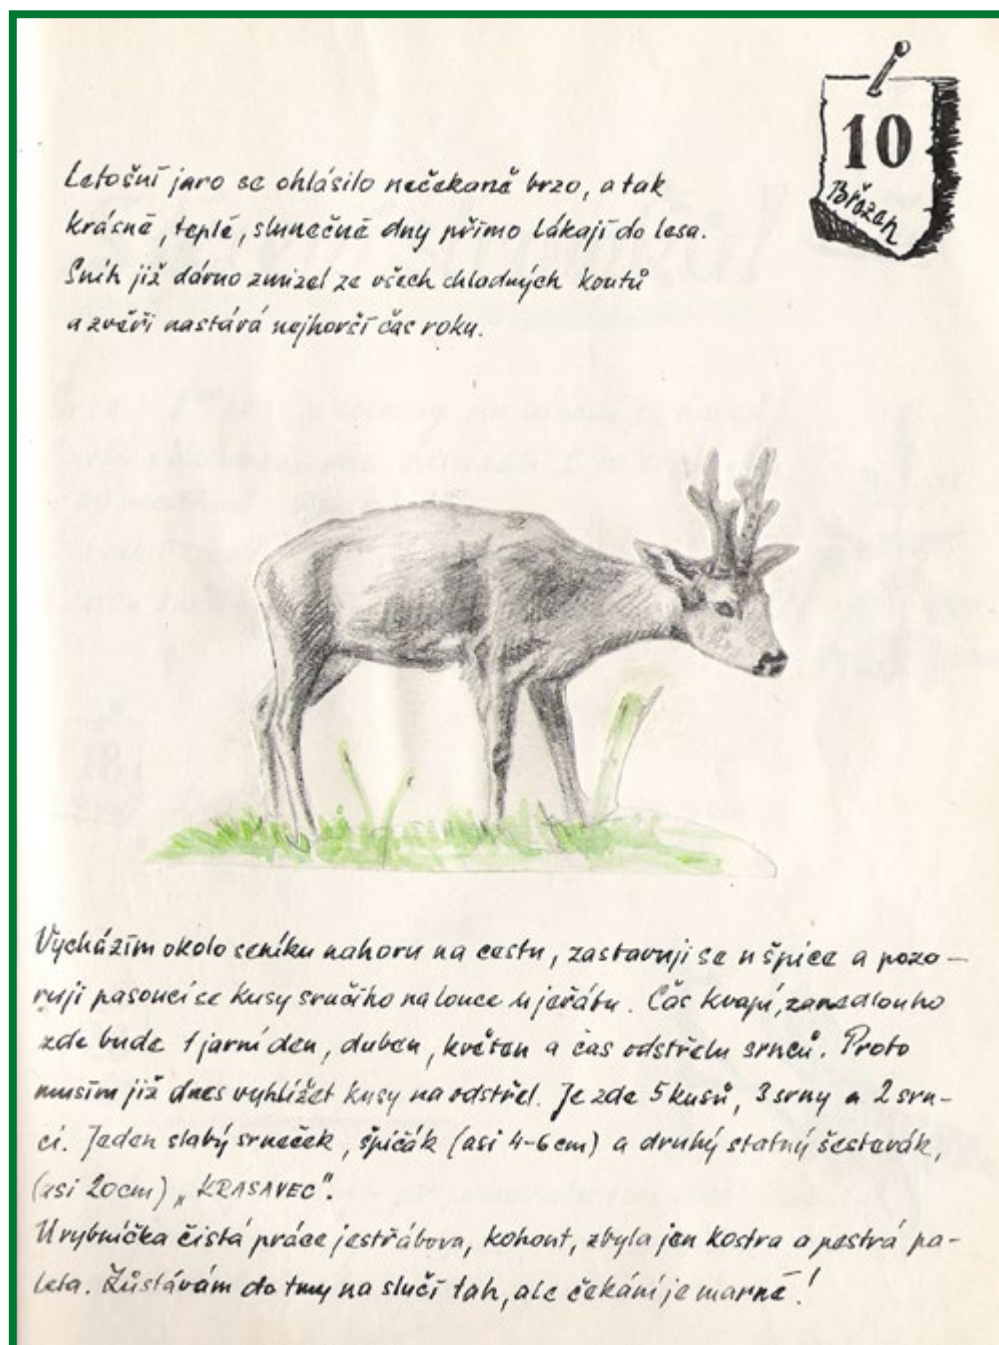 10
Březen
Letošní jaro se ohlásilo nečekaně brzo, a tak
krásné, teplé, slunečné dny přímo lákají do lesa.
Sníh již dávno zmizel ze všech chladných koutů
a zvěři nastává nejhorší čas roku.
Vycházím okolo seníku nahoru na cestu, zastavuji se u špice a pozo-
ruji pasoucí se kusy srnčího na louce u jeřábu. Čas kvapí, zanedlouho
zde bude 1 jarní den, duben, květen a čas odstřelu srnců. Proto
musím již dnes vyhlížet kusy na odstřel. Je zde 5 kusů, 3 srny a 2 srn-
ci. Jeden slabý srneček, špičák (asi 4-6 cm) a druhý statný šesterák,
(asi 20cm) „KRASAVEC".
U rybníčka čistá práce jestřábova, kohout, zbyla jen kostra a pestrá pa-
leta. Zůstávám do tmy na slučí tah, ale čekání je marné!